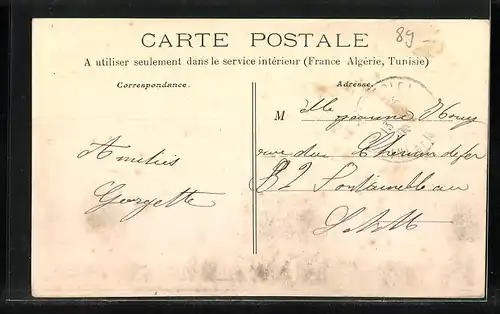 89
CARTE POSTALE
A utiliser seulement dans le service intérieur (France Algérie, Tunisie)
Correspondance.
Adresse.
Amitiés
Georgette
Mlle Jeanne
rue du Chemin de fer
82 Fontainebleau
S et M